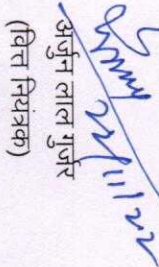 22/11/22
अर्जुन लाल गुर्जर
(वित्त नियंत्रक)